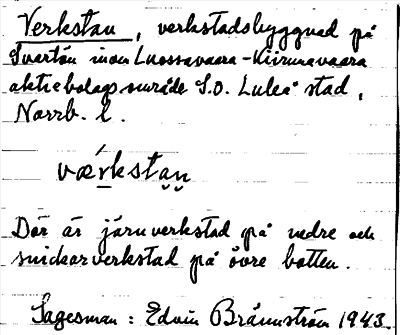 Verkstan, verkstadsbyggnad på
Svartön inom Luossavaara-Kiirunavaara
aktiebolags område S.O. Luleå stad,
Norrb. l.
værkstan̯
Där är järnverkstad på nedre och
snickerverkstad på övre botten.
Sagesman: Edvin Brännström 1943.